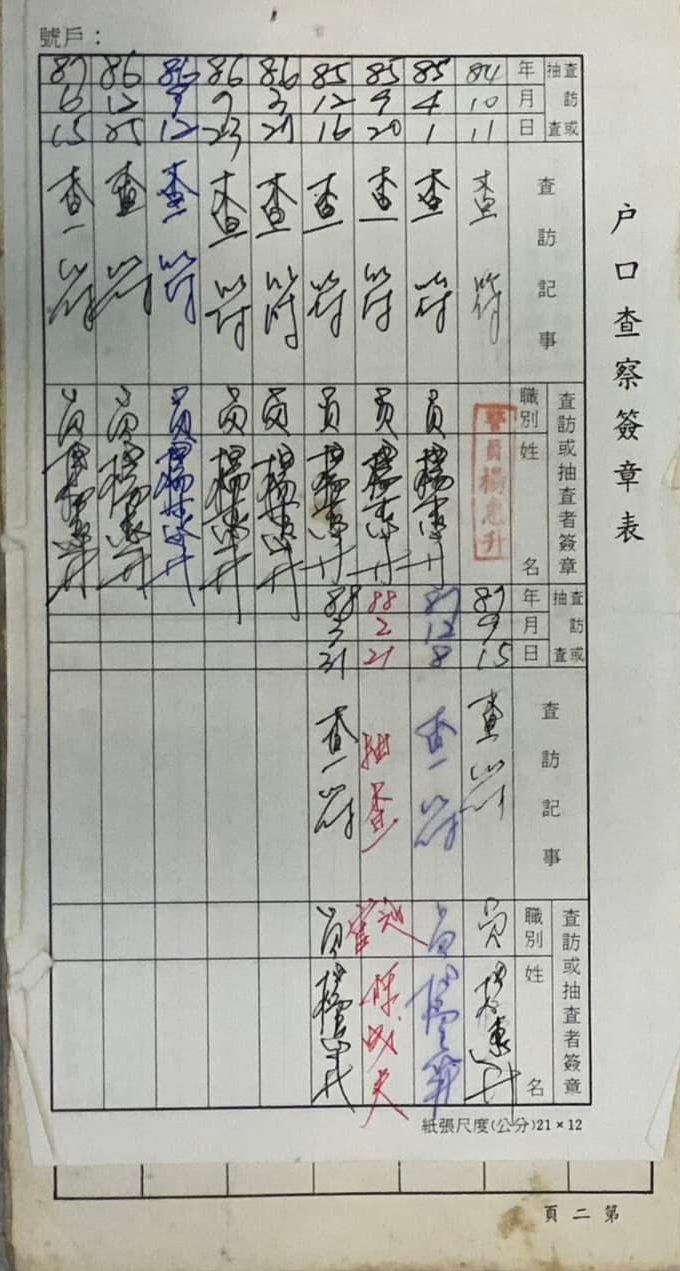 戶號：
戶口查察簽章表
查訪或抽查
年
月
日
查訪記事
查訪或抽查者簽章
職別
姓名
84 10 11
查符
警員楊惠升
85 4 1
查符
員楊惠升
85 9 20
查符
員楊惠升
85 12 16
查符
員楊惠升
86 3 27
查符
員楊惠升
86 9 23
查符
員楊惠升
86 9 12
查符
員楊惠升
86 12 25
查符
員楊惠升
87 6 15
查符
員楊惠升
查訪或抽查
年
月
日
查訪記事
查訪或抽查者簽章
職別
姓名
87 9 15
查符
員楊惠升
87 12 8
查符
員楊惠升
88 2 21
抽查
88 3 31
查符
員楊惠升
紙張尺度(公分)21×12
第二頁